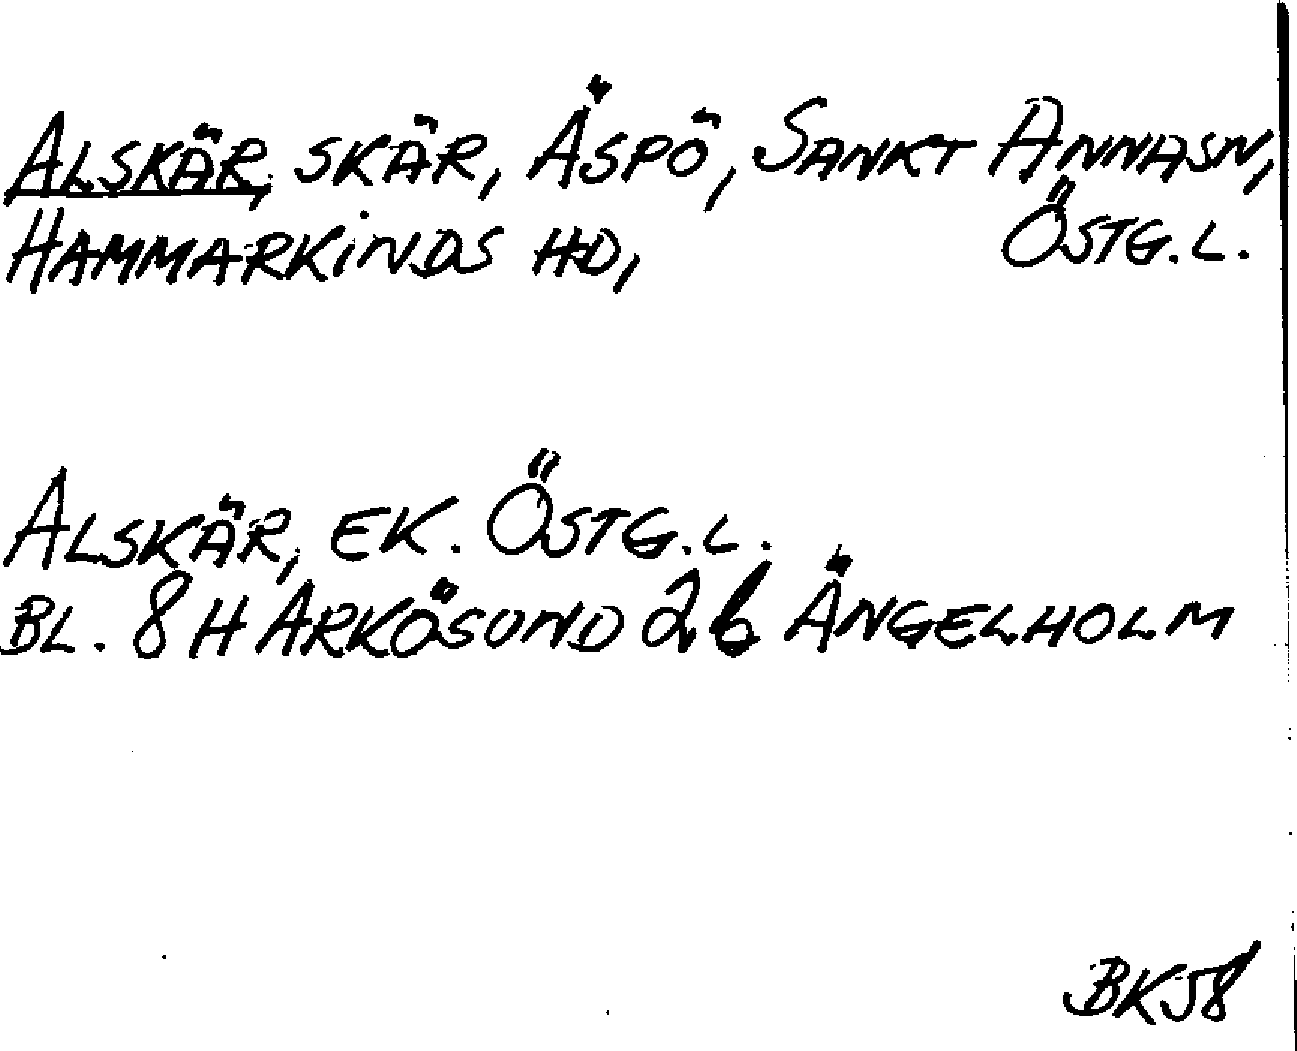 ALSKÄR, SKÄR, ÅSPÖ, SANKT ANNASN,
HAMMARKINDS HD, ÖSTG.L.
ALSKÄR, EK. ÖSTG.L.
BL. 8 H ARKÖSUND 2 b ÄNGELHOLM
BK58